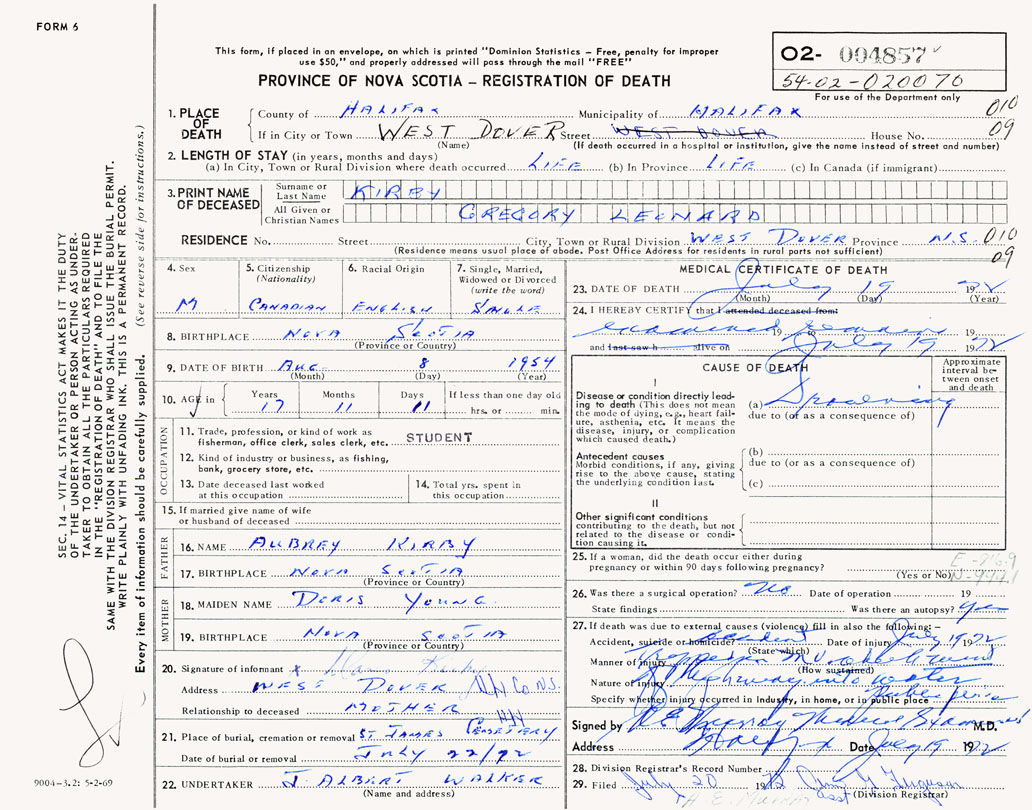 FORM 6
This form, if placed in an envelope, on which is printed "Dominion Statistics – Free, penalty for improper
use $50," and properly addressed will pass through the mail "FREE"
PROVINCE OF NOVA SCOTIA – REGISTRATION OF DEATH
O2- 004857
54-02-020070
For use of the Department only
1. PLACE OF DEATH
County of HALIFAX Municipality of HALIFAX 010
If in City or Town WEST DOVER Street WEST DOVER House No. 09
(Name) (If death occurred in a hospital or institution, give the name instead of street and number)
2. LENGTH OF STAY (in years, months and days)
(a) In City, Town or Rural Division where death occurred LIFE (b) In Province LIFE (c) In Canada (if immigrant)
3. PRINT NAME OF DECEASED
Surname or Last Name KIRBY
All Given or Christian Names GREGORY LEONARD
RESIDENCE No. Street City, Town or Rural Division WEST DOVER Province N.S. 010
(Residence means usual place of abode. Post Office Address for residents in rural parts not sufficient) 09
4. Sex
M
5. Citizenship
(Nationality)
CANADIAN
6. Racial Origin
ENGLISH
7. Single, Married,
Widowed or Divorced
(write the word)
SINGLE
8. BIRTHPLACE NOVA SCOTIA
(Province or Country)
9. DATE OF BIRTH AUG. 8 1954
(Month) (Day) (Year)
10. AGE in
Years Months Days If less than one day old
17 11 11 hrs. or min.
OCCUPATION
11. Trade, profession, or kind of work as
fisherman, office clerk, sales clerk, etc. STUDENT
12. Kind of industry or business, as fishing,
bank, grocery store, etc.
13. Date deceased last worked
at this occupation
14. Total yrs. spent in
this occupation
15. If married give name of wife
or husband of deceased
FATHER
16. NAME AUBREY KIRBY
17. BIRTHPLACE NOVA SCOTIA
(Province or Country)
MOTHER
18. MAIDEN NAME DORIS YOUNG
19. BIRTHPLACE NOVA SCOTIA
(Province or Country)
20. Signature of informant x Kirby
Address WEST DOVER Hfx Co N.S.
Relationship to deceased MOTHER
21. Place of burial, cremation or removal ST. JAMES CEMETERY
Date of burial or removal JULY 22/72
22. UNDERTAKER J. ALBERT WALKER
(Name and address)
MEDICAL CERTIFICATE OF DEATH
23. DATE OF DEATH July 19 1972
(Month) (Day) (Year)
24. I HEREBY CERTIFY that I attended deceased from:
examined remains 19 to 19
and last saw h alive on July 19 1972
CAUSE OF DEATH
Approximate
interval be-
tween onset
and death
I
Disease or condition directly lead-
ing to death (This does not mean
the mode of dying, e.g., heart fail-
ure, asthenia, etc. It means the
disease, injury, or complication
which caused death.)
(a) Drowning
due to (or as a consequence of)
Antecedent causes
Morbid conditions, if any, giving
rise to the above cause, stating
the underlying condition last.
(b)
due to (or as a consequence of)
(c)
II
Other significant conditions
contributing to the death, but not
related to the disease or condi-
tion causing it.
25. If a woman, did the death occur either during
pregnancy or within 90 days following pregnancy?
(Yes or No)
26. Was there a surgical operation? No Date of operation 19
State findings Was there an autopsy? yes
27. If death was due to external causes (violence) fill in also the following: –
Accident, suicide or homicide? accident Date of injury July 19 1972
(State which)
Manner of injury
(How sustained)
Nature of injury highway into water
Specify whether injury occurred in industry, in home, or in public place Public place
Signed by Murray Medical Examiner M.D.
Address Date July 19 1972
28. Division Registrar's Record Number
29. Filed July 20 1972 Ferguson
(Division Registrar)
SEC. 14 – VITAL STATISTICS ACT MAKES IT THE DUTY
OF THE UNDERTAKER OR PERSON ACTING AS UNDER-
TAKER TO OBTAIN ALL THE PARTICULARS REQUIRED
IN THE "REGISTRATION OF DEATH" AND TO FILE THE
SAME WITH THE DIVISION REGISTRAR WHO SHALL ISSUE THE BURIAL PERMIT.
WRITE PLAINLY WITH UNFADING INK. THIS IS A PERMANENT RECORD.
Every item of information should be carefully supplied. (See reverse side for instructions.)
9004-3.2: 5-2-69